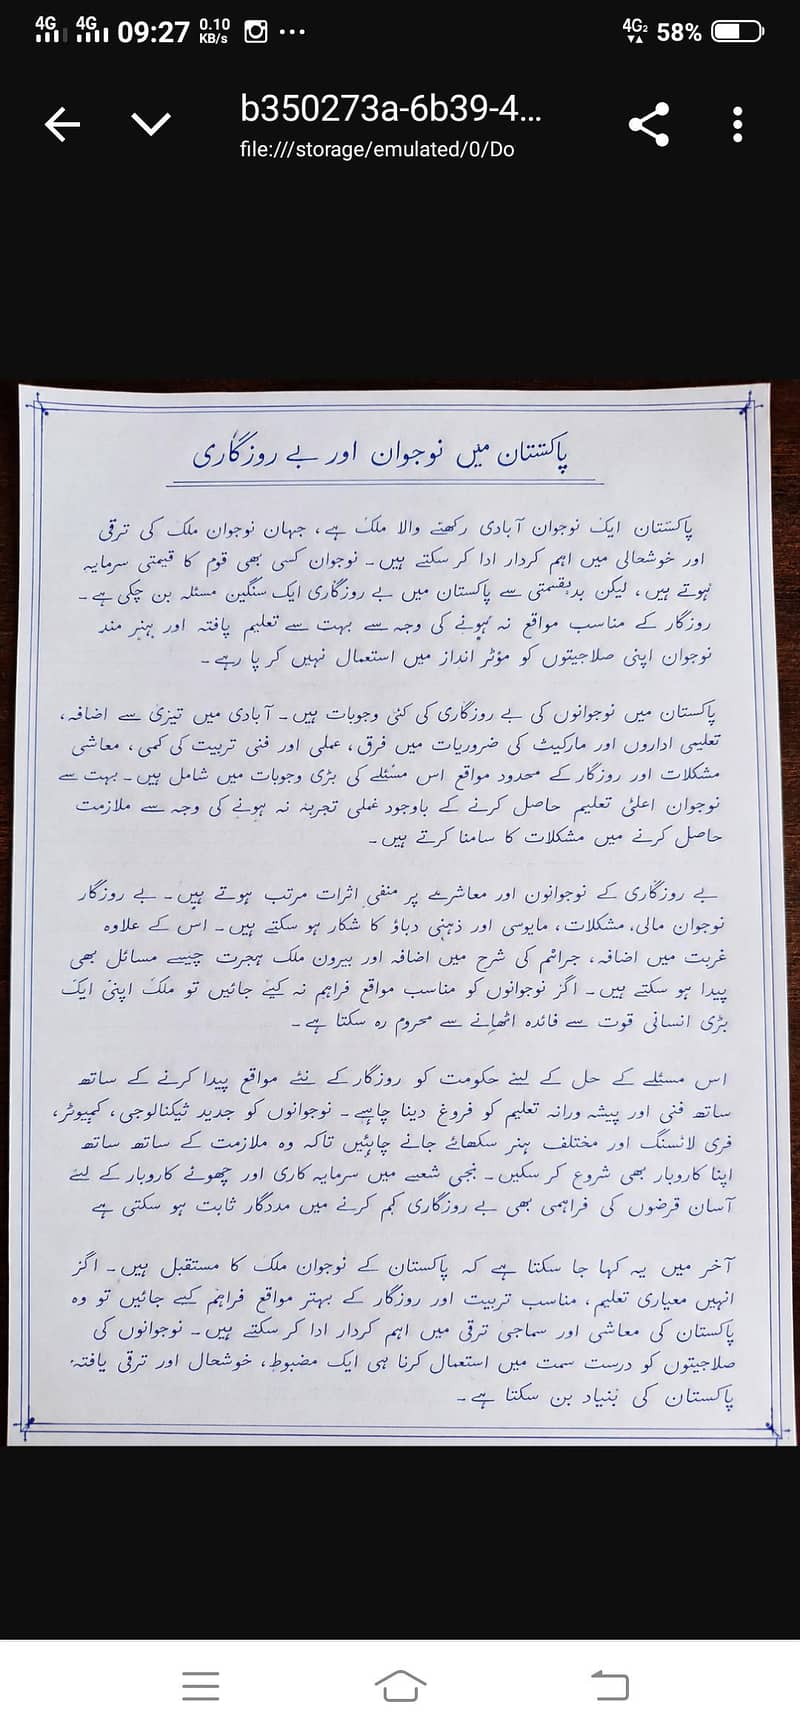 4G 4G 09:27 0.10 KB/s 4G2 58%
b350273a-6b39-4...
file:///storage/emulated/0/Do
پاکستان میں نوجوان اور بے روزگاری
پاکستان ایک نوجوان آبادی رکھنے والا ملک ہے، جہاں نوجوان ملک کی ترقی
اور خوشحالی میں اہم کردار ادا کر سکتے ہیں۔ نوجوان کسی بھی قوم کا قیمتی سرمایہ
ہوتے ہیں، لیکن بدقسمتی سے پاکستان میں بے روزگاری ایک سنگین مسئلہ بن چکی ہے۔
روزگار کے مناسب مواقع نہ ہونے کی وجہ سے بہت سے تعلیم یافتہ اور ہنر مند
نوجوان اپنی صلاحیتوں کو مؤثر انداز میں استعمال نہیں کر پا رہے۔
پاکستان میں نوجوانوں کی بے روزگاری کی کئی وجوہات ہیں۔ آبادی میں تیزی سے اضافہ،
تعلیمی اداروں اور مارکیٹ کی ضروریات میں فرق، عملی اور فنی تربیت کی کمی، معاشی
مشکلات اور روزگار کے محدود مواقع اس مسئلے کی بڑی وجوہات میں شامل ہیں۔ بہت سے
نوجوان اعلیٰ تعلیم حاصل کرنے کے باوجود عملی تجربہ نہ ہونے کی وجہ سے ملازمت
حاصل کرنے میں مشکلات کا سامنا کرتے ہیں۔
بے روزگاری کے نوجوانوں اور معاشرے پر منفی اثرات مرتب ہوتے ہیں۔ بے روزگار
نوجوان مالی، مشکلات، مایوسی اور ذہنی دباؤ کا شکار ہو سکتے ہیں۔ اس کے علاوہ
غربت میں اضافہ، جرائم کی شرح میں اضافہ اور بیرون ملک ہجرت جیسے مسائل بھی
پیدا ہو سکتے ہیں۔ اگر نوجوانوں کو مناسب مواقع فراہم نہ کیے جائیں تو ملک اپنی ایک
بڑی انسانی قوت سے فائدہ اٹھانے سے محروم رہ سکتا ہے۔
اس مسئلے کے حل کے لیے حکومت کو روزگار کے نئے مواقع پیدا کرنے کے ساتھ
ساتھ فنی اور پیشہ ورانہ تعلیم کو فروغ دینا چاہیے۔ نوجوانوں کو جدید ٹیکنالوجی، کمپیوٹر،
فری لانسنگ اور مختلف ہنر سکھائے جانے چاہئیں تاکہ وہ ملازمت کے ساتھ ساتھ
اپنا کاروبار بھی شروع کر سکیں۔ نجی شعبے میں سرمایہ کاری اور چھوٹے کاروبار کے لیے
آسان قرضوں کی فراہمی بھی بے روزگاری کم کرنے میں مددگار ثابت ہو سکتی ہے
آخر میں یہ کہا جا سکتا ہے کہ پاکستان کے نوجوان ملک کا مستقبل ہیں۔ اگر
انہیں معیاری تعلیم، مناسب تربیت اور روزگار کے بہتر مواقع فراہم کیے جائیں تو وہ
پاکستان کی معاشی اور سماجی ترقی میں اہم کردار ادا کر سکتے ہیں۔ نوجوانوں کی
صلاحیتوں کو درست سمت میں استعمال کرنا ہی ایک مضبوط، خوشحال اور ترقی یافتہ
پاکستان کی بنیاد بن سکتا ہے۔